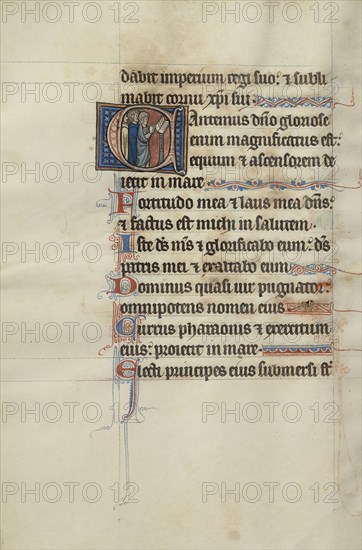 dabit imperium regi suo: & subli
mabit cornu xp̄i sui.
Cantemus dn̄o gloriose
enim magnificatus est:
equum & ascensorem de
iecit in mare.
Fortitudo mea & laus mea dn̄s:
& factus est michi in salutem.
Iste ds̄ ms̄ & glorificabo eum: ds̄
patris mei & exaltabo eum.
Dominus quasi uir pugnator:
omnipotens nomen eius.
Currus pharaonis & exercitum
eius: proiecit in mare.
Electi principes eius submersi st̄
PHOTO12